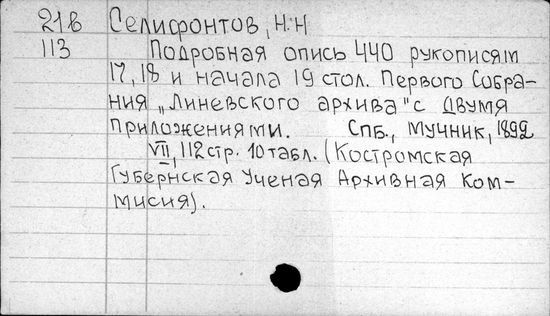 21в Селифонтов, Н.Н
113 Подробная опись 440 рукописям
17, 18 и начала 19 стол. Первого Собра-
ния „Линевского архива" с двумя
приложениями. Спб., Мучник, 1892
VII, 112 стр. 10 табл. (Костромская
Губернская Ученая Архивная Ком-
мисия).